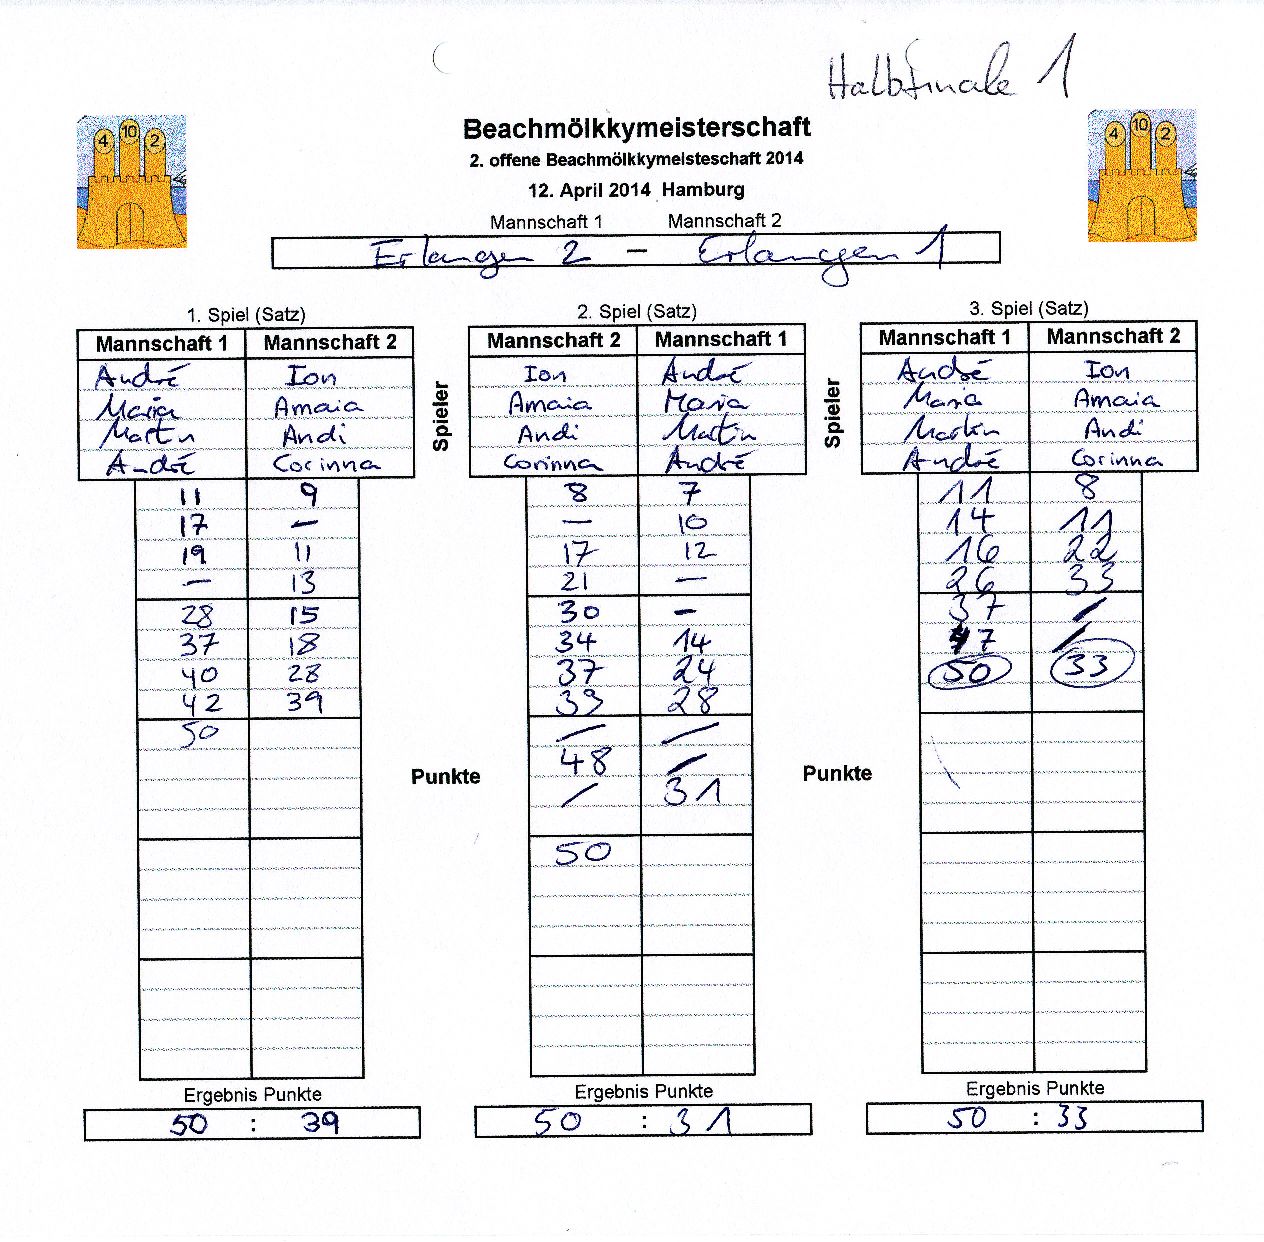 Halbfinale 1
4 10 2
4 10 2
Beachmölkkymeisterschaft
2. offene Beachmölkkymeisteschaft 2014
12. April 2014 Hamburg
Mannschaft 1 Mannschaft 2
Erlangen 2 – Erlangen 1
1. Spiel (Satz)
Mannschaft 1 Mannschaft 2
André Ion
Maria Amaia
Martin Andi
André Corinna
11 9
17 –
19 11
– 13
28 15
37 18
40 28
42 39
50
Ergebnis Punkte
50 : 39
Spieler
Punkte
2. Spiel (Satz)
Mannschaft 2 Mannschaft 1
Ion André
Amaia Maria
Andi Martin
Corinna André
8 7
– 10
17 12
21 –
30 –
34 14
37 24
39 28
/ /
48 /
/ 31
50
Ergebnis Punkte
50 : 31
Spieler
Punkte
3. Spiel (Satz)
Mannschaft 1 Mannschaft 2
André Ion
Maria Amaia
Martin Andi
André Corinna
11 8
14 11
16 22
26 33
37 /
47 /
50 33
Ergebnis Punkte
50 : 33